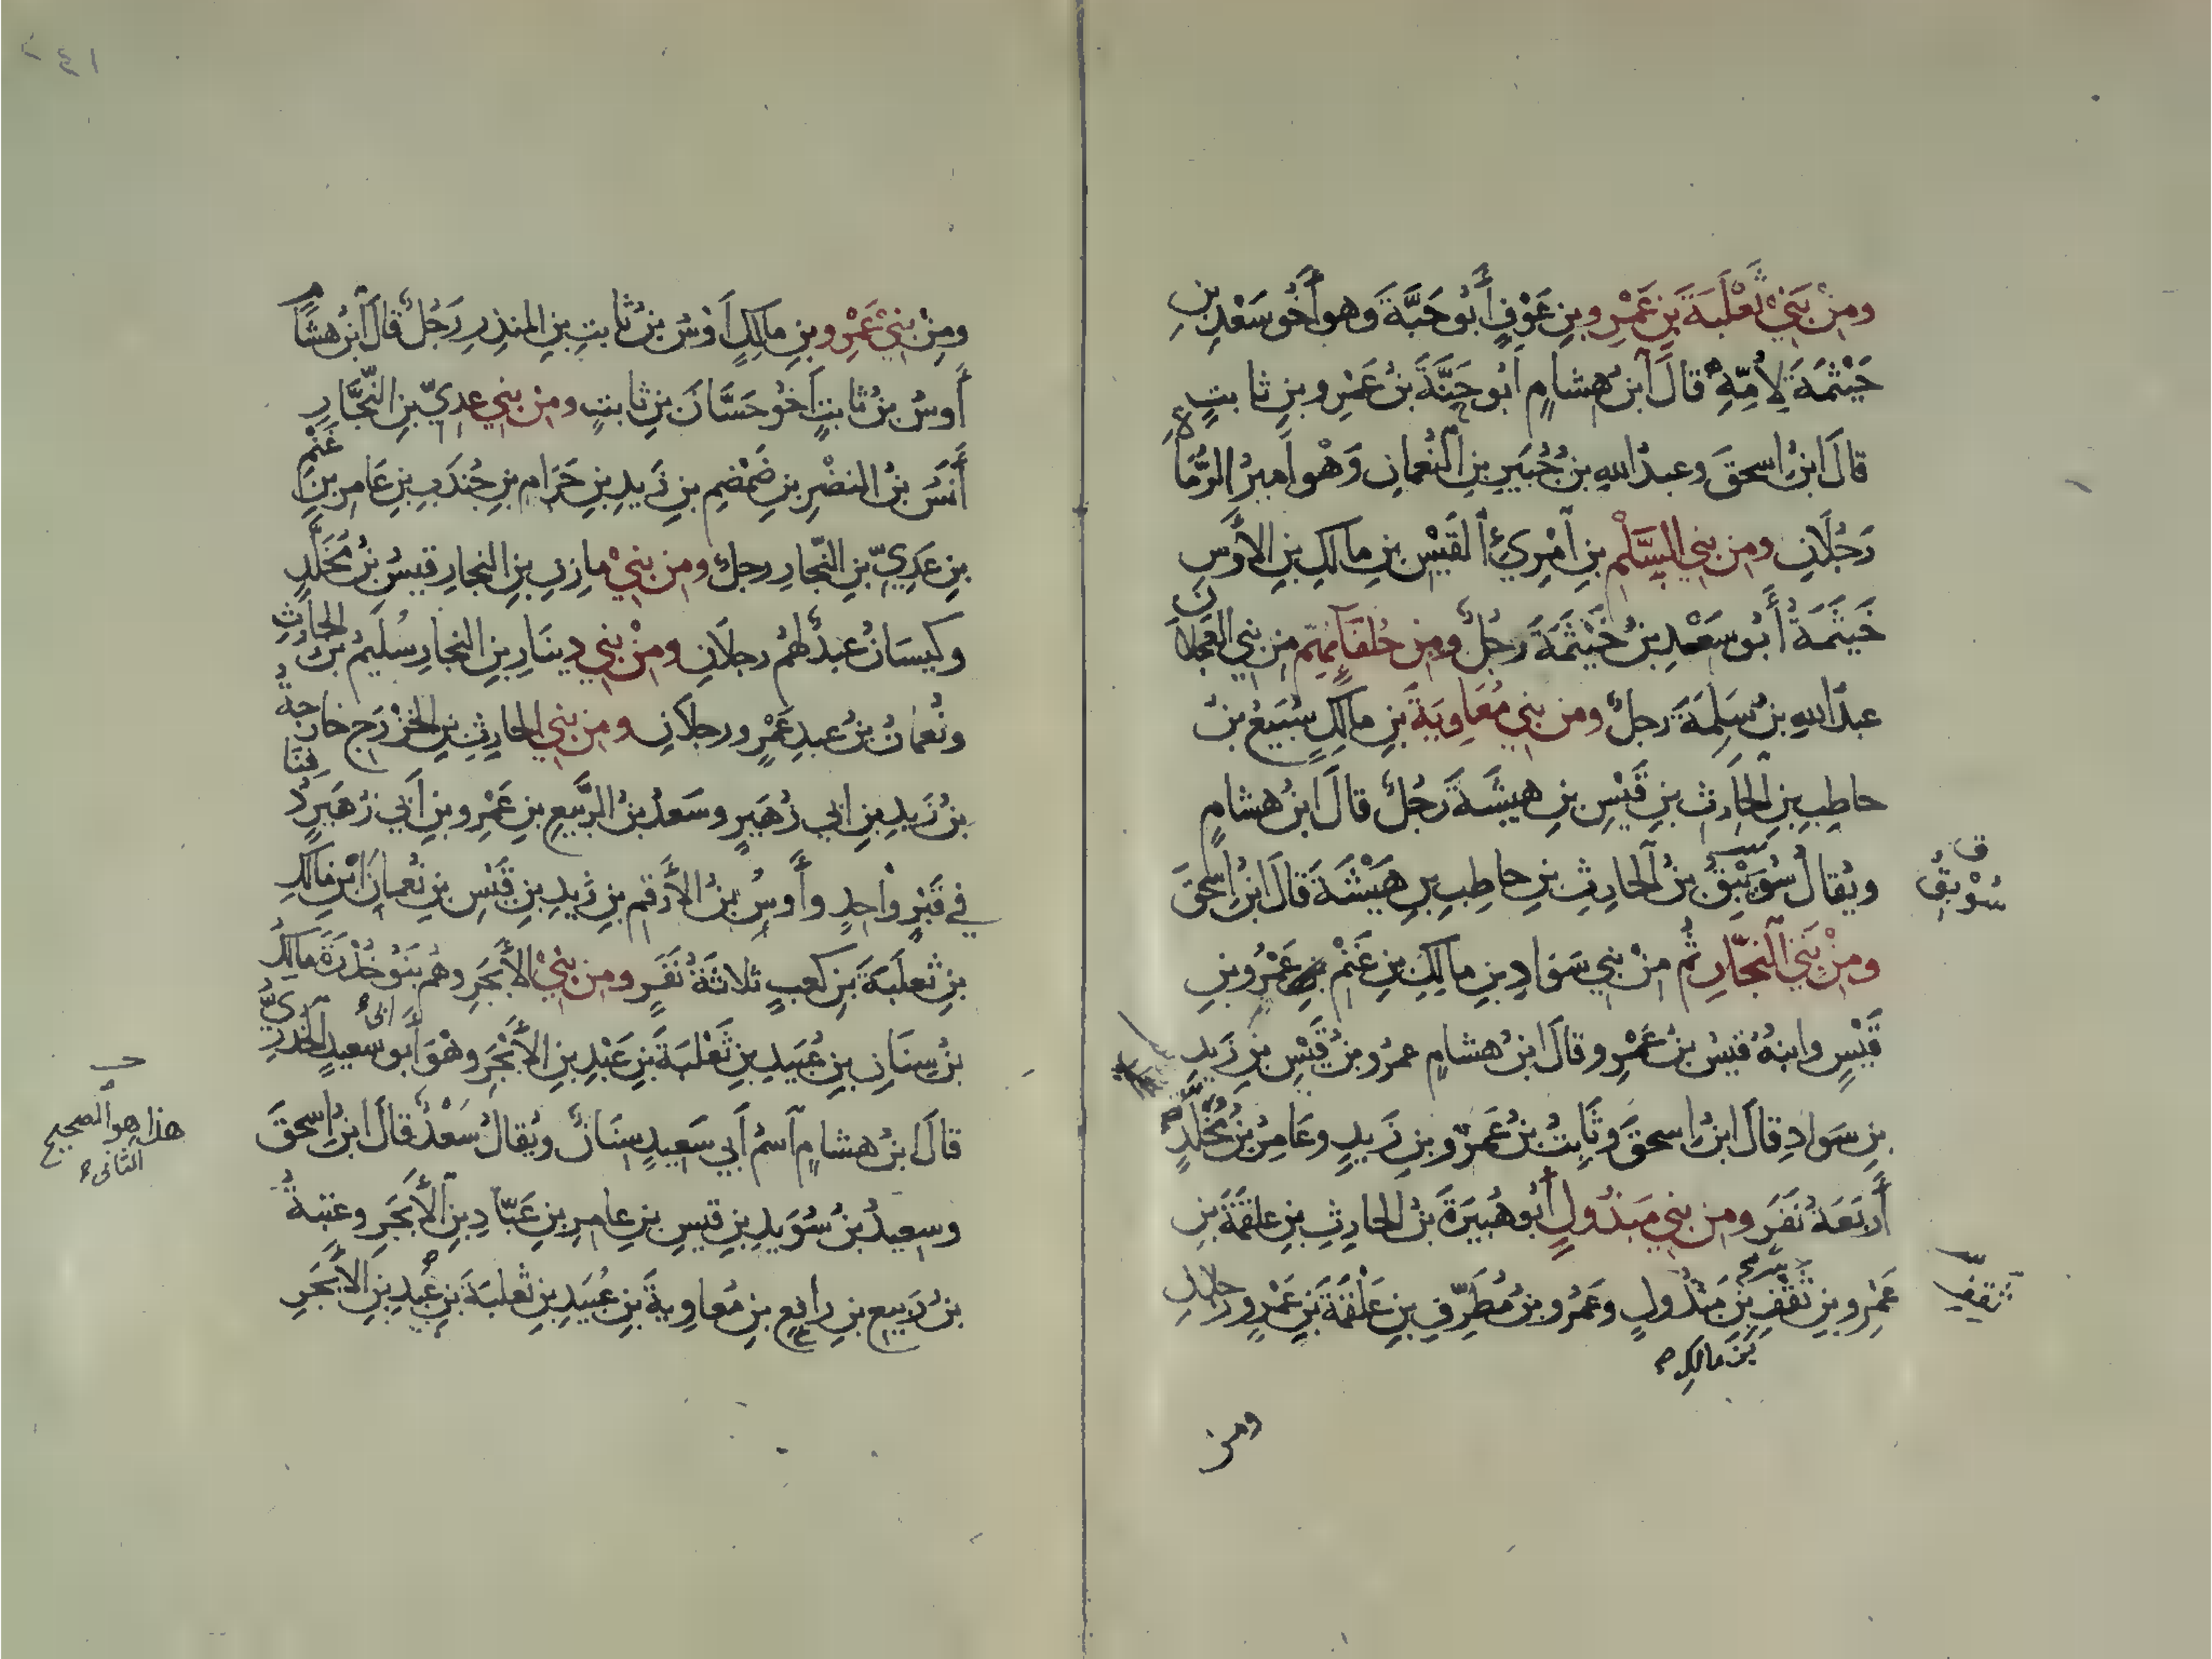 ومِنْ بَنِيْ ثَعْلَبَةَ بنِ عَمْرِو بنِ عَوْفٍ أَبُو حَبَّةَ وَهو أَخُو سَعْدِ بنِ
خَيْثَمَةَ لِأُمِّهِ قالَ ابنُ هشامٍ ابُو حَنَّةَ بنُ عَمْرِو بنِ ثابتٍ
قالَ ابنُ اسحقَ وعبدُ اللهِ بنُ جُبَيرِ بنِ النُّعمانِ وَهْو اَميرُ الرُّمَاةِ
رَجُلَانِ ومن بنِي السَّلْمِ بنِ امْرِئِ القَيْسِ بنِ مالكِ بنِ الأَوْسِ
خَيثَمَةُ أَبُو سَعْدِ بنُ خَيْثَمَةَ رَجُلٌ ومِن حُلفَآئِهِم من بنِي العَجلانِ
عبدُ اللهِ بنُ سَلِمَةَ رجلٌ ومن بنِي مُعَاوِيَةَ بنِ مالكٍ سُبَيعُ بنُ
حاطِبِ بنِ الحَارِثِ بنِ قَيْسِ بنِ هيشَةَ رَجُلٌ قالَ ابنُ هشامٍ
ويُقالُ سُوَيْبِقُ بنُ الحارِثِ بنِ حاطِبِ بنِ هَيْشَةَ قالَ ابنُ اسحقَ
ق
سُوْبِقُ
ومِنْ بَنِي النجّارِ ثُم منْ بنِي سَوادِ بنِ مالِكِ بنِ غَنْمٍ عَمْرُو بنُ
قَيْسٍ وابنُهُ قيسُ بنُ عَمْرٍو قالَ ابنُ هشامٍ عمرُو بنُ قَيْسِ بنِ زَيدِ
بنِ سَوادِ قالَ ابنُ اسحقَ وثَابِتُ بنُ عَمْرِو بنِ زَيدٍ وعَامِرُ بنُ مُخَلَّدٍ
أَربَعَةُ نَفَرٍ ومن بنِي مَبذُولٍ أَبُو هُبَيرَةَ بنُ الحارِثِ بنِ علقَمَةَ بنِ
عَمْرِو بنِ ثَقْفِ بنِ مَبْذُولٍ وعَمرُو بنُ مُطَرِّفِ بنِ عَلْقَمَةَ بنِ عَمْرٍو رجلانِ
ثقف
بنِ مالكٍ
ومن
ومِنْ بنِيْ عَمْرِو بنِ مالكٍ أَوْسُ بنُ ثابتِ بنِ المنذِرِ رَجُلٌ قالَ ابنُ هشامٍ
أَوسُ بنُ ثابتٍ أَخُو حَسَّانَ بنِ ثابتٍ ومِنْ بنِي عدِيِّ بنِ النَّجَّارِ
أَنَسُ بنُ النضْرِ بنِ ضَمْضمِ بنِ زَيدِ بنِ حَرَام بنِ جُندَبِ بنِ عَامرِ بنِ غَنْمِ
بنِ عَدِيِّ بنِ النّجارِ رجلٌ ومن بنِيْ مازنِ بنِ النجارِ قيسُ بنُ مُخَلَّدٍ
وكَيسَانُ عبدٌ لهُم رجلَانِ ومنْ بنِي دينَارِ بنِ النجارِ سُلَيمُ بنُ الحَارثِ
ونُعمانُ بنُ عبدِ عَمْرٍو رجلَانِ ومن بنِي الحارِثِ بنِ الخزْرَجِ خارجةُ
بنُ زَيدِ بنِ ابي زُهَيرٍ وسَعدُ بنُ الرَّبيعِ بنِ عَمْرِو بنِ أَبي زُهَيرٍ دُفِنَا
في قَبْرٍ وَاحِدٍ وأَوسُ بنُ الأَرْقمِ بنِ زَيدِ بنِ قَيْسِ بنِ نُعمانَ ابْنِ مَالكِ
بنِ ثَعلَبَةَ بنِ كعبٍ ثلاثَةُ نَفَرٍ ومن بنِيْ الأَبجَرِ وهُم بَنُو خُدْرَةَ مالكُ
بنُ سِنَانِ بنِ عُبَيدِ بنِ ثَعْلَبَةَ بنِ عَبْدِ بنِ الأَبْجَرِ وهْوَ أَبُو سَعيدٍ الخُدرِيُّ
ابى
هذا هو الصحيح
الثانى
قالَ ابنُ هشامٍ اسمُ أَبي سَعِيدٍ سنَانٌ ويُقالُ سَعْدٌ قالَ ابنُ اسحقَ
وسعيدُ بنُ سُوَيدِ بنِ قيسِ بنِ عامرِ بنِ عَبّادِ بنِ الأَبجَرِ وعتبةُ
بنُ رَبيعِ بنِ رافعِ بنِ مُعاوِيةَ بنِ عُبَيدِ بنِ ثعلبَةَ بنِ عُبيدِ بنِ الأَبْجَرِ